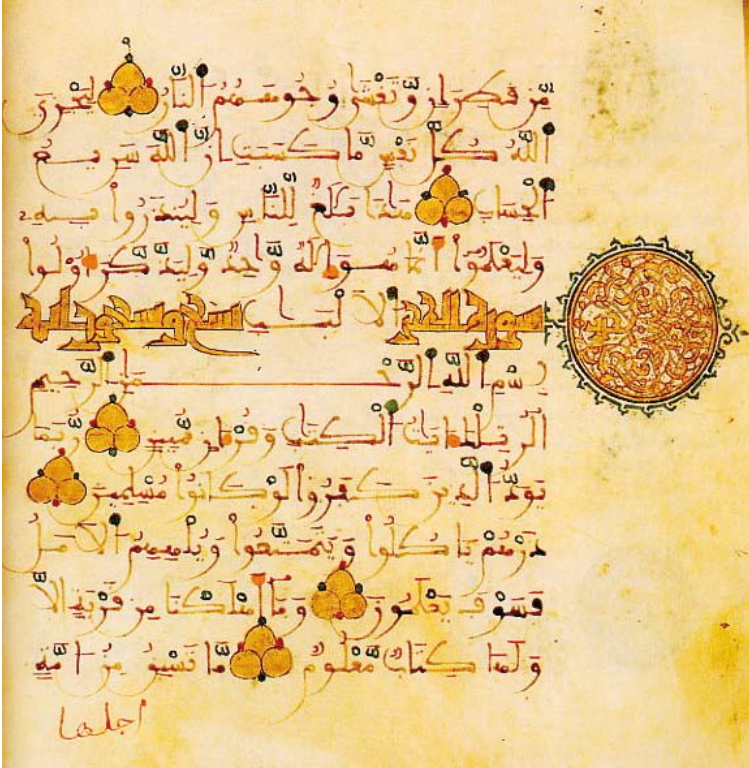 مِّن قَطِرَانٍ وَّتَغْشَىٰ وُجُوهَهُمُ النَّارُ لِيَجْزِيَ
اللَّهُ كُلَّ نَفْسٍ مَّا كَسَبَتِ اِنَّ اللَّهَ سَرِيعُ
الْحِسَابِ هَٰذَا بَلَٰغٌ لِّلنَّاسِ وَلِيُنذَرُواْ بِهِۦ
وَلِيَعْلَمُواْ أَنَّمَا هُوَ إِلَٰهٌ وَّاحِدٌ وَّلِيَذَّكَّرَ أُوْلُواْ
سورة الحجر اَلَالْبَٰبِ تسع وتسعون آية
بِسْمِ اللَّهِ الرَّحْمَٰنِ الرَّحِيمِ
الٓر تِلْكَ ءَايَٰتُ الْكِتَٰبِ وَقُرْءَانٍ مُّبِينٍ رُّبَمَا
يَوَدُّ الَّذِينَ كَفَرُواْ لَوْ كَانُواْ مُسْلِمِينَ
ذَرْهُمْ يَاكُلُواْ وَيَتَمَتَّعُواْ وَيُلْهِهِمُ الَامَلُ
فَسَوْفَ يَعْلَمُونَ وَمَآ أَهْلَكْنَا مِن قَرْيَةٍ اِلَّا
وَلَهَا كِتَابٌ مَّعْلُومٌ مَّا تَسْبِقُ مِنُ امَّةٍ
اجلها